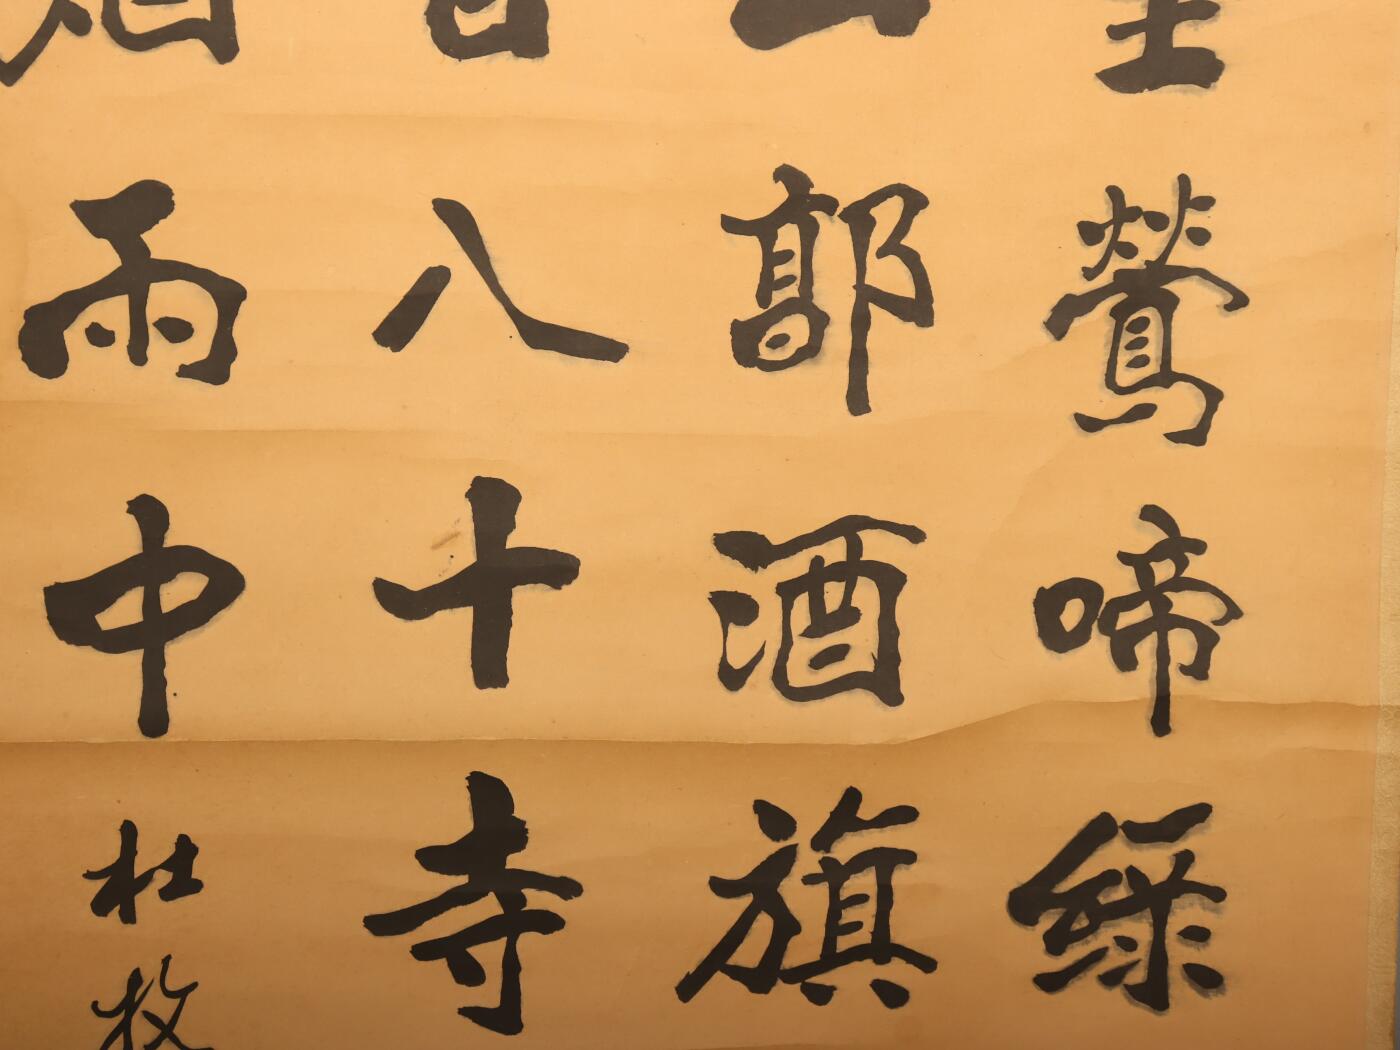 鶯啼綠
郭酒旗
八十寺
雨中
杜牧